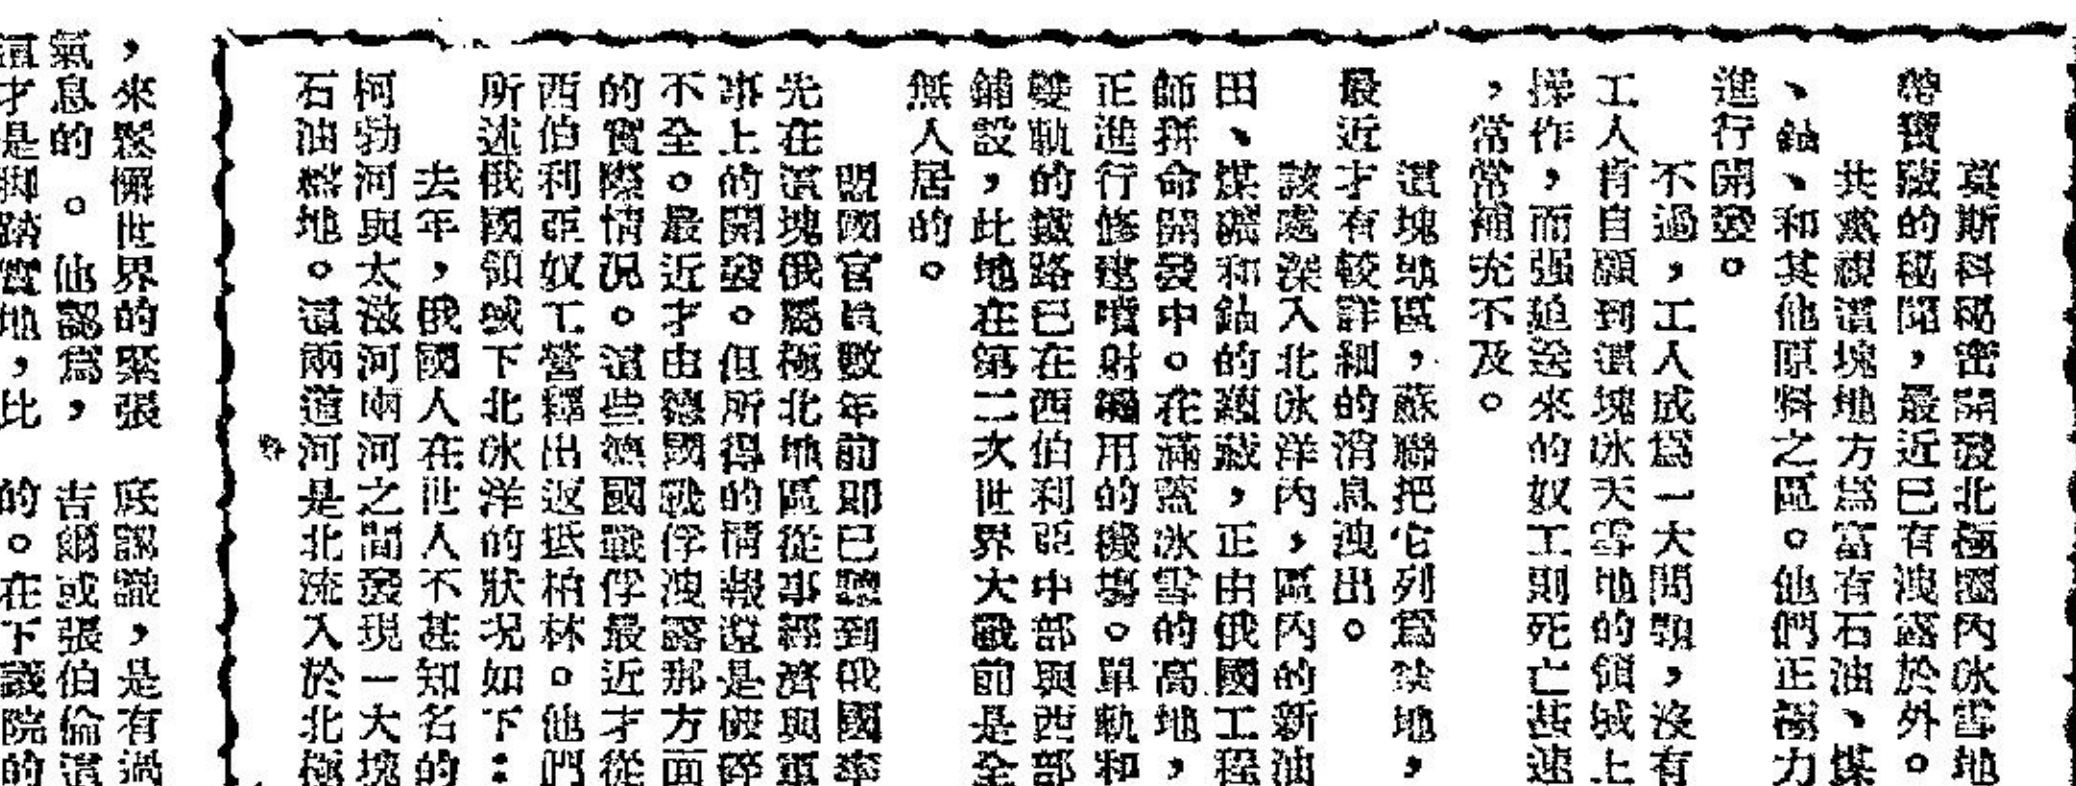 莫斯科秘密開發北極圈內冰雪地
帶寶藏的秘聞，最近已有洩露於外。
共黨視這塊地方爲富有石油、煤
、鈾、和其他原料之區。他們正極力
進行開發。
不過，工人成爲一大問題，沒有
工人肯自願到這塊冰天雪地的領域上
操作，而强迫送來的奴工則死亡甚速
，常常補充不及。
這塊地區，蘇聯把它列爲禁地，
最近才有較詳細的消息洩出。
該處深入北冰洋內，區內的新油
田、煤礦和鈾的蘊藏，正由俄國工程
師拼命開發中。在滿蓋冰雪的高地，
正進行修建噴射機用的機塲。單軌和
雙軌的鐵路已在西伯利亞中部與西部
鋪設，此地在第二次世界大戰前是全
無人居的。
盟國官員數年前即已聽到俄國率
先在這塊俄屬極北地區從事經濟與軍
事上的開發。但所得的情報還是破碎
不全。最近才由德國戰俘洩露那方面
的實際情况。這些德國戰俘最近才從
西伯利亞奴工營釋出返抵柏林。他們
所述俄國領域下北冰洋的狀况如下：
去年，俄國人在世人不甚知名的
柯勃河與太滋河兩河之間發現一大塊
石油盤地。這兩道河是北流入於北極
，來鬆懈世界的緊張
氣息的。他認爲，
這才是脚踏實地，比
底認識，是有過
吉爾或張伯倫這
的。在下議院的